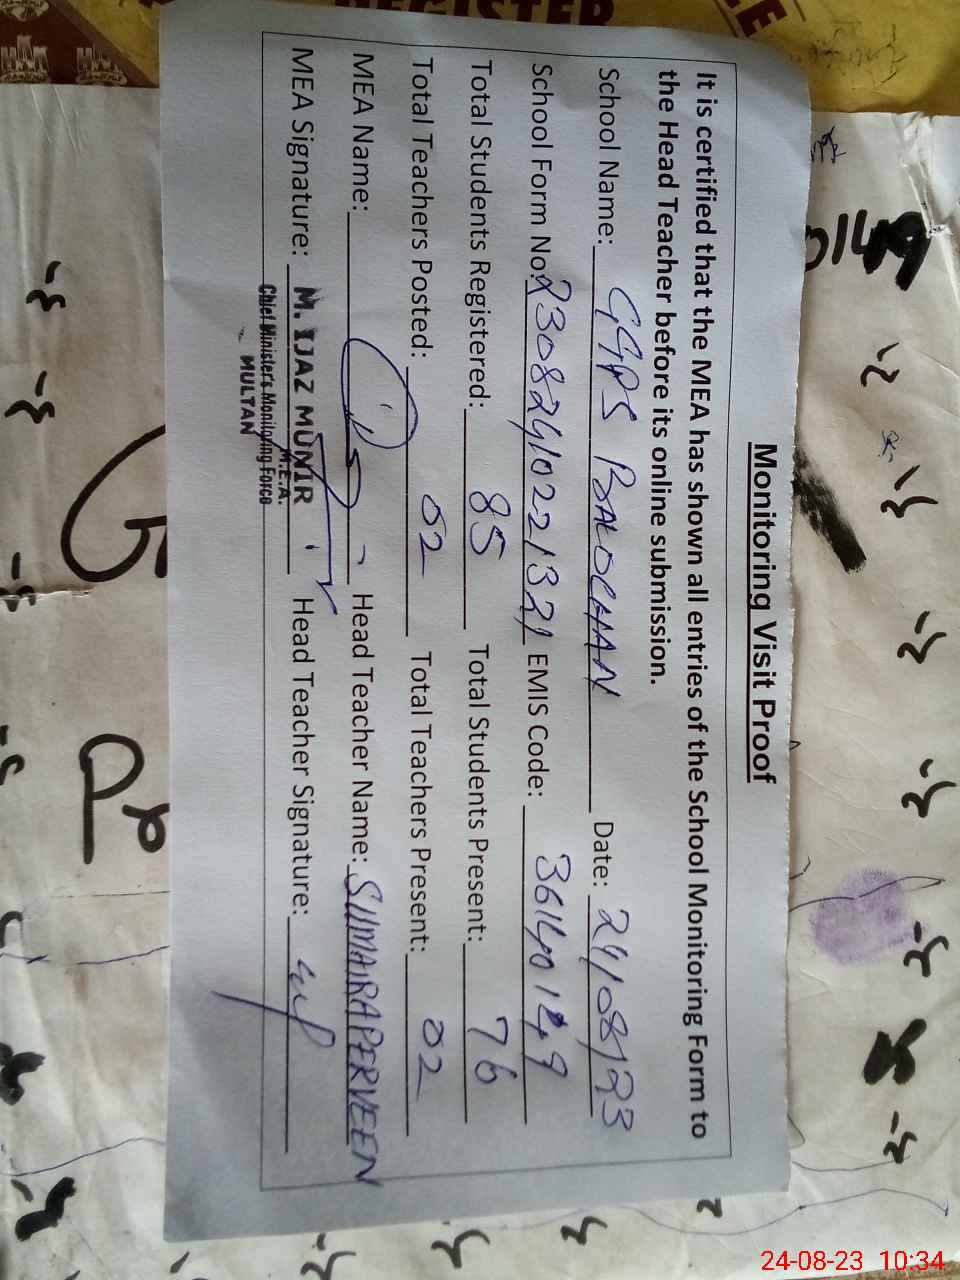 Monitoring Visit Proof
It is certified that the MEA has shown all entries of the School Monitoring Form to
the Head Teacher before its online submission.
School Name: GGPS BALOCHAN Date: 24/08/23
School Form No: 2308240221321 EMIS Code: 36140149
Total Students Registered: 85 Total Students Present: 76
Total Teachers Posted: 02 Total Teachers Present: 02
MEA Name: Head Teacher Name: SUMAIRA PERVEEN
MEA Signature: M. IJAZ MUNIR Head Teacher Signature:
M.E.A.
Chief Minister's Monitoring Force
MULTAN
24-08-23 10:34